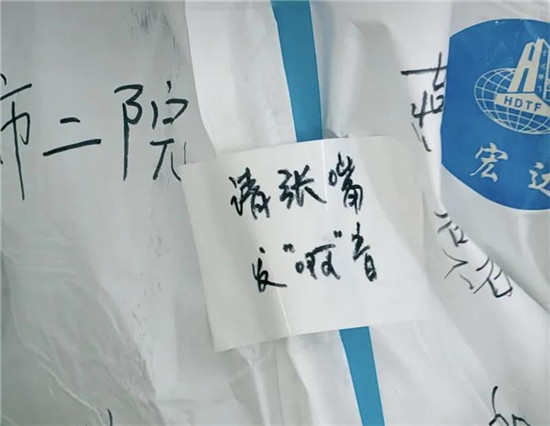 市二院
请张嘴
发"啊"音
HDTF
宏达